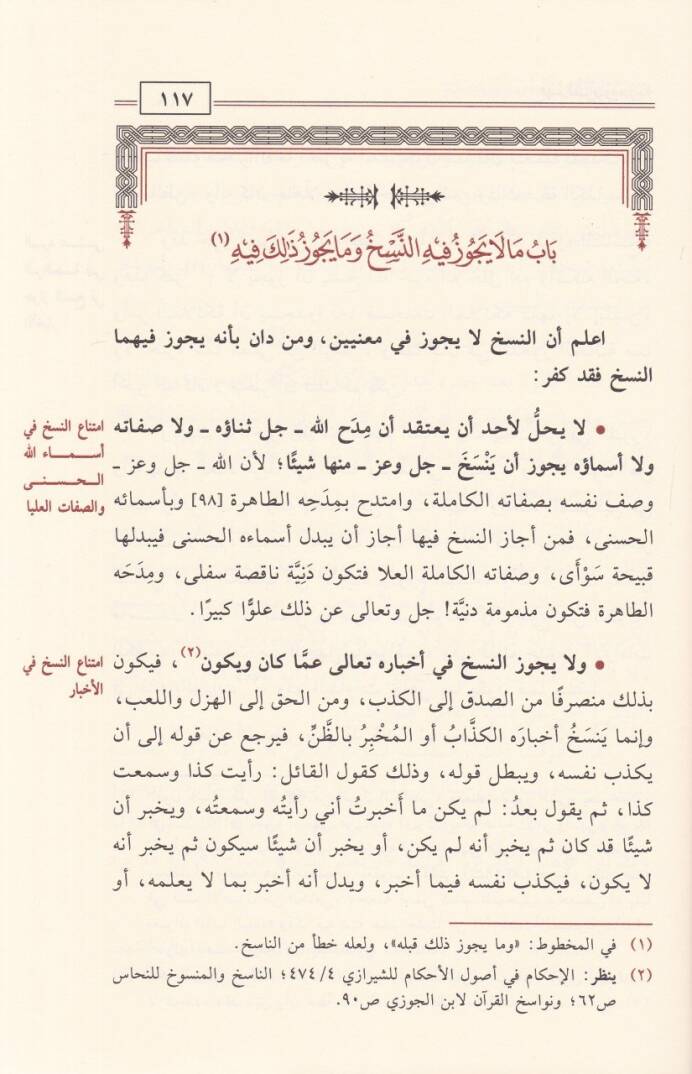 ١١٧
بَابُ مَا لَا يَجُوزُ فِيهِ النَّسْخُ وَمَا يَجُوزُ ذَلِكَ فِيهِ (١)
اعلم أن النسخ لا يجوز في معنيين، ومن دان بأنه يجوز فيهما
النسخ فقد كفر:
• لا يحلُّ لأحد أن يعتقد أن مِدَح الله ـ جل ثناؤه ـ ولا صفاته
ولا أسماؤه يجوز أن يَنْسَخَ ـ جل وعز ـ منها شيئًا؛ لأن الله ـ جل وعز ـ
وصف نفسه بصفاته الكاملة، وامتدح بمِدَحِه الطاهرة [٩٨] وبأسمائه
الحسنى، فمن أجاز النسخ فيها أجاز أن يبدل أسماءه الحسنى فيبدلها
قبيحة سَوْأَى، وصفاته الكاملة العلا فتكون دَنِيَّة ناقصة سفلى، ومِدَحَه
الطاهرة فتكون مذمومة دنيَّة! جل وتعالى عن ذلك علوًّا كبيرًا.
امتناع النسخ في
أسماء الله
الحسنى
والصفات العليا
• ولا يجوز النسخ في أخباره تعالى عمَّا كان ويكون(٢)، فيكون
بذلك منصرفًا من الصدق إلى الكذب، ومن الحق إلى الهزل واللعب،
وإنما يَنسَخُ أخبارَه الكذَّابُ أو المُخْبِرُ بالظَّنِّ، فيرجع عن قوله إلى أن
يكذب نفسه، ويبطل قوله، وذلك كقول القائل: رأيت كذا وسمعت
كذا، ثم يقول بعدُ: لم يكن ما أَخبرتُ أني رأيتُه وسمعتُه، ويخبر أن
شيئًا قد كان ثم يخبر أنه لم يكن، أو يخبر أن شيئًا سيكون ثم يخبر أنه
لا يكون، فيكذب نفسه فيما أخبر، ويدل أنه أخبر بما لا يعلمه، أو
امتناع النسخ في
الأخبار
(١) في المخطوط: «وما يجوز ذلك قبله»، ولعله خطأ من الناسخ.
(٢) ينظر: الإحكام في أصول الأحكام للشيرازي ٤/ ٤٧٤؛ الناسخ والمنسوخ للنحاس
ص٦٢؛ ونواسخ القرآن لابن الجوزي ص٩٠.